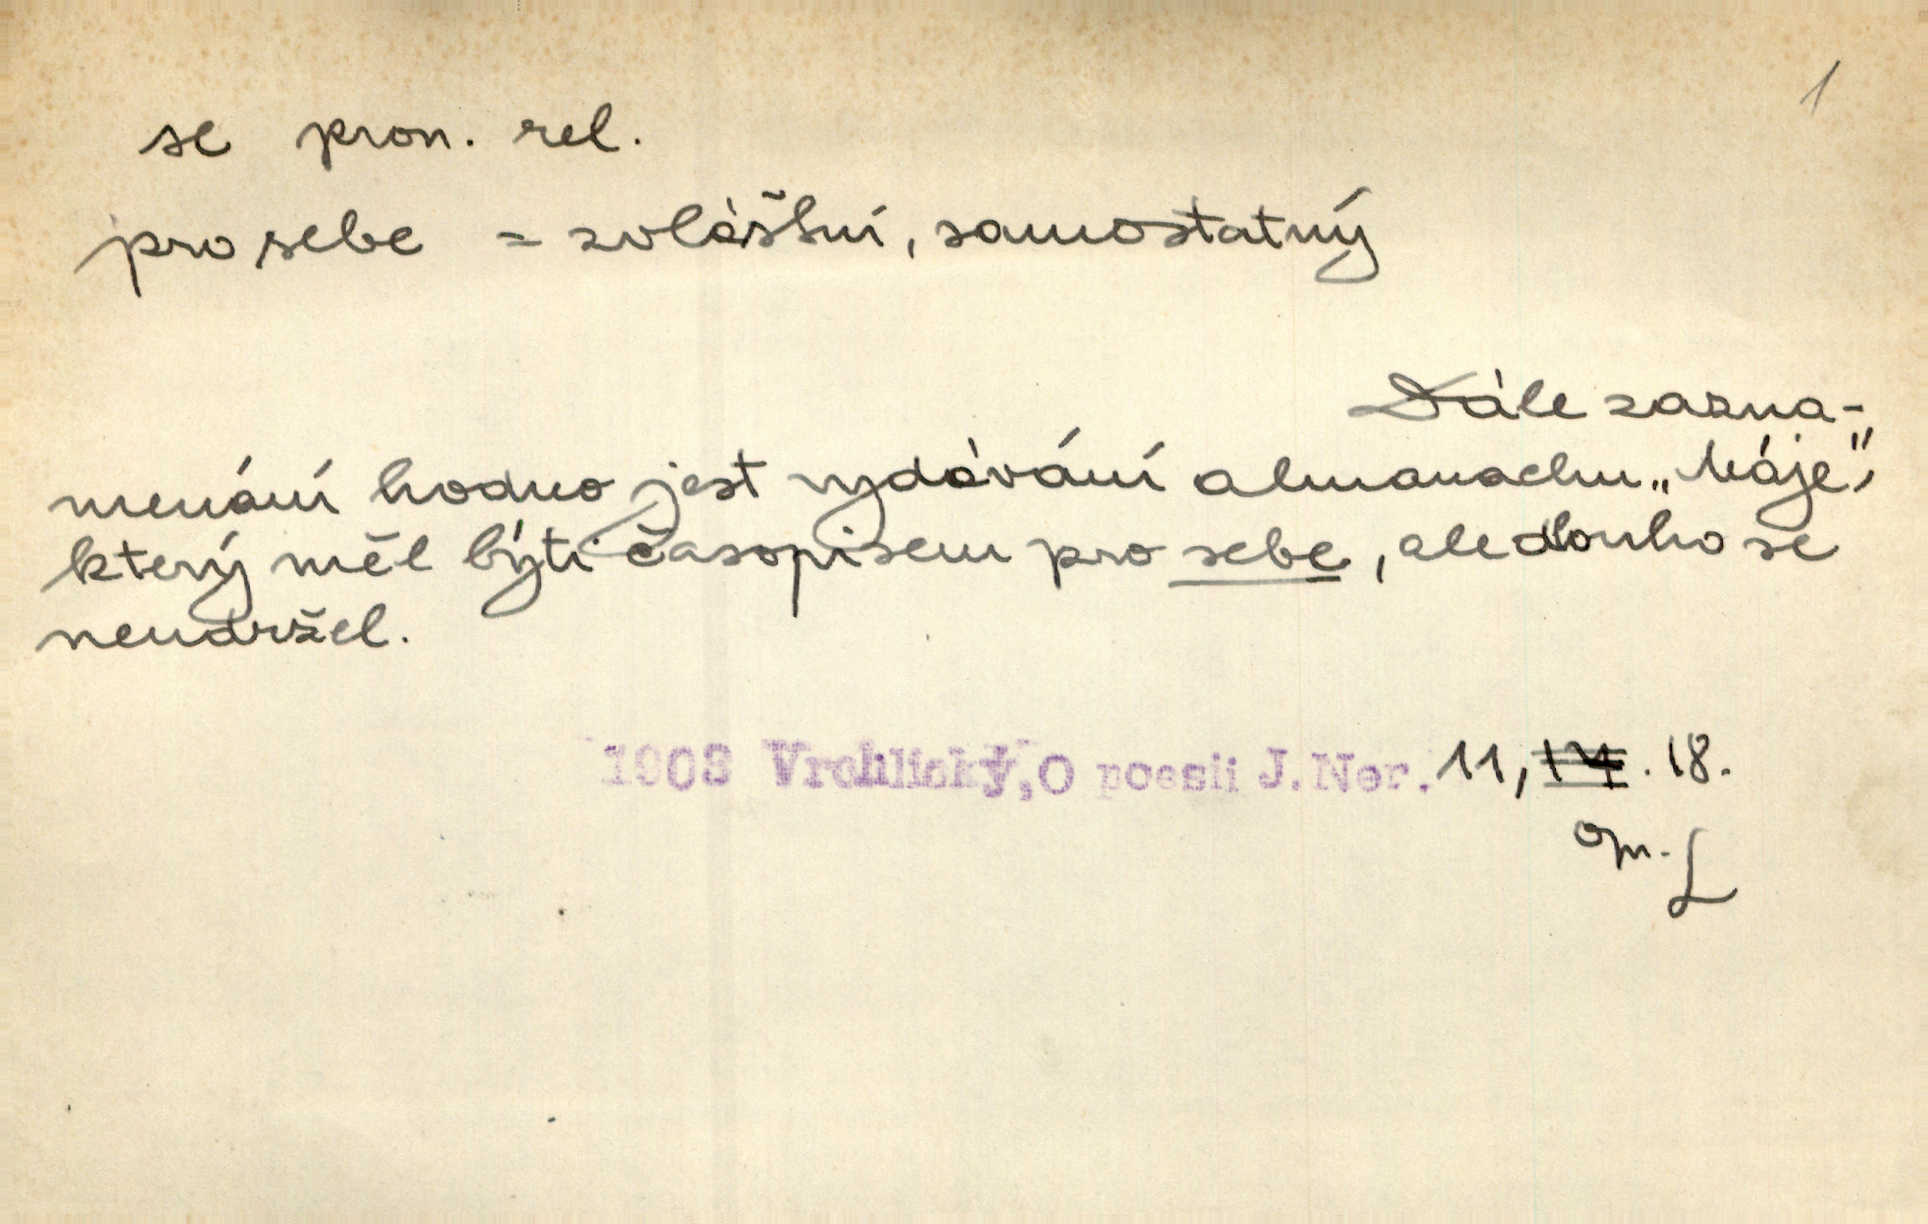 1
se pron. rel.
pro sebe = zvláštní, samostatný
Dále zazna-
menání hodno jest vydávání almanachu „Máje“,
který měl býti časopisem pro sebe, ale dlouho se
neudržel.
1903 Vrchlický, O poesii J. Ner. 11, 14. 18.
Op. L